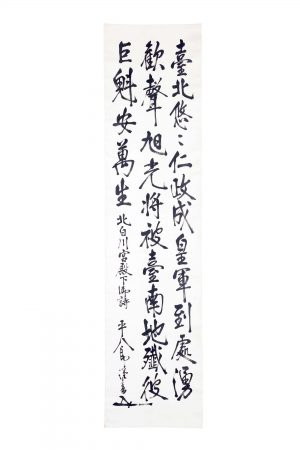 臺北悠〻仁政成皇軍到處湧
歡聲旭光將被臺南地殲彼
巨魁安萬生
北白川宮殿下御詩
平八郎謹書